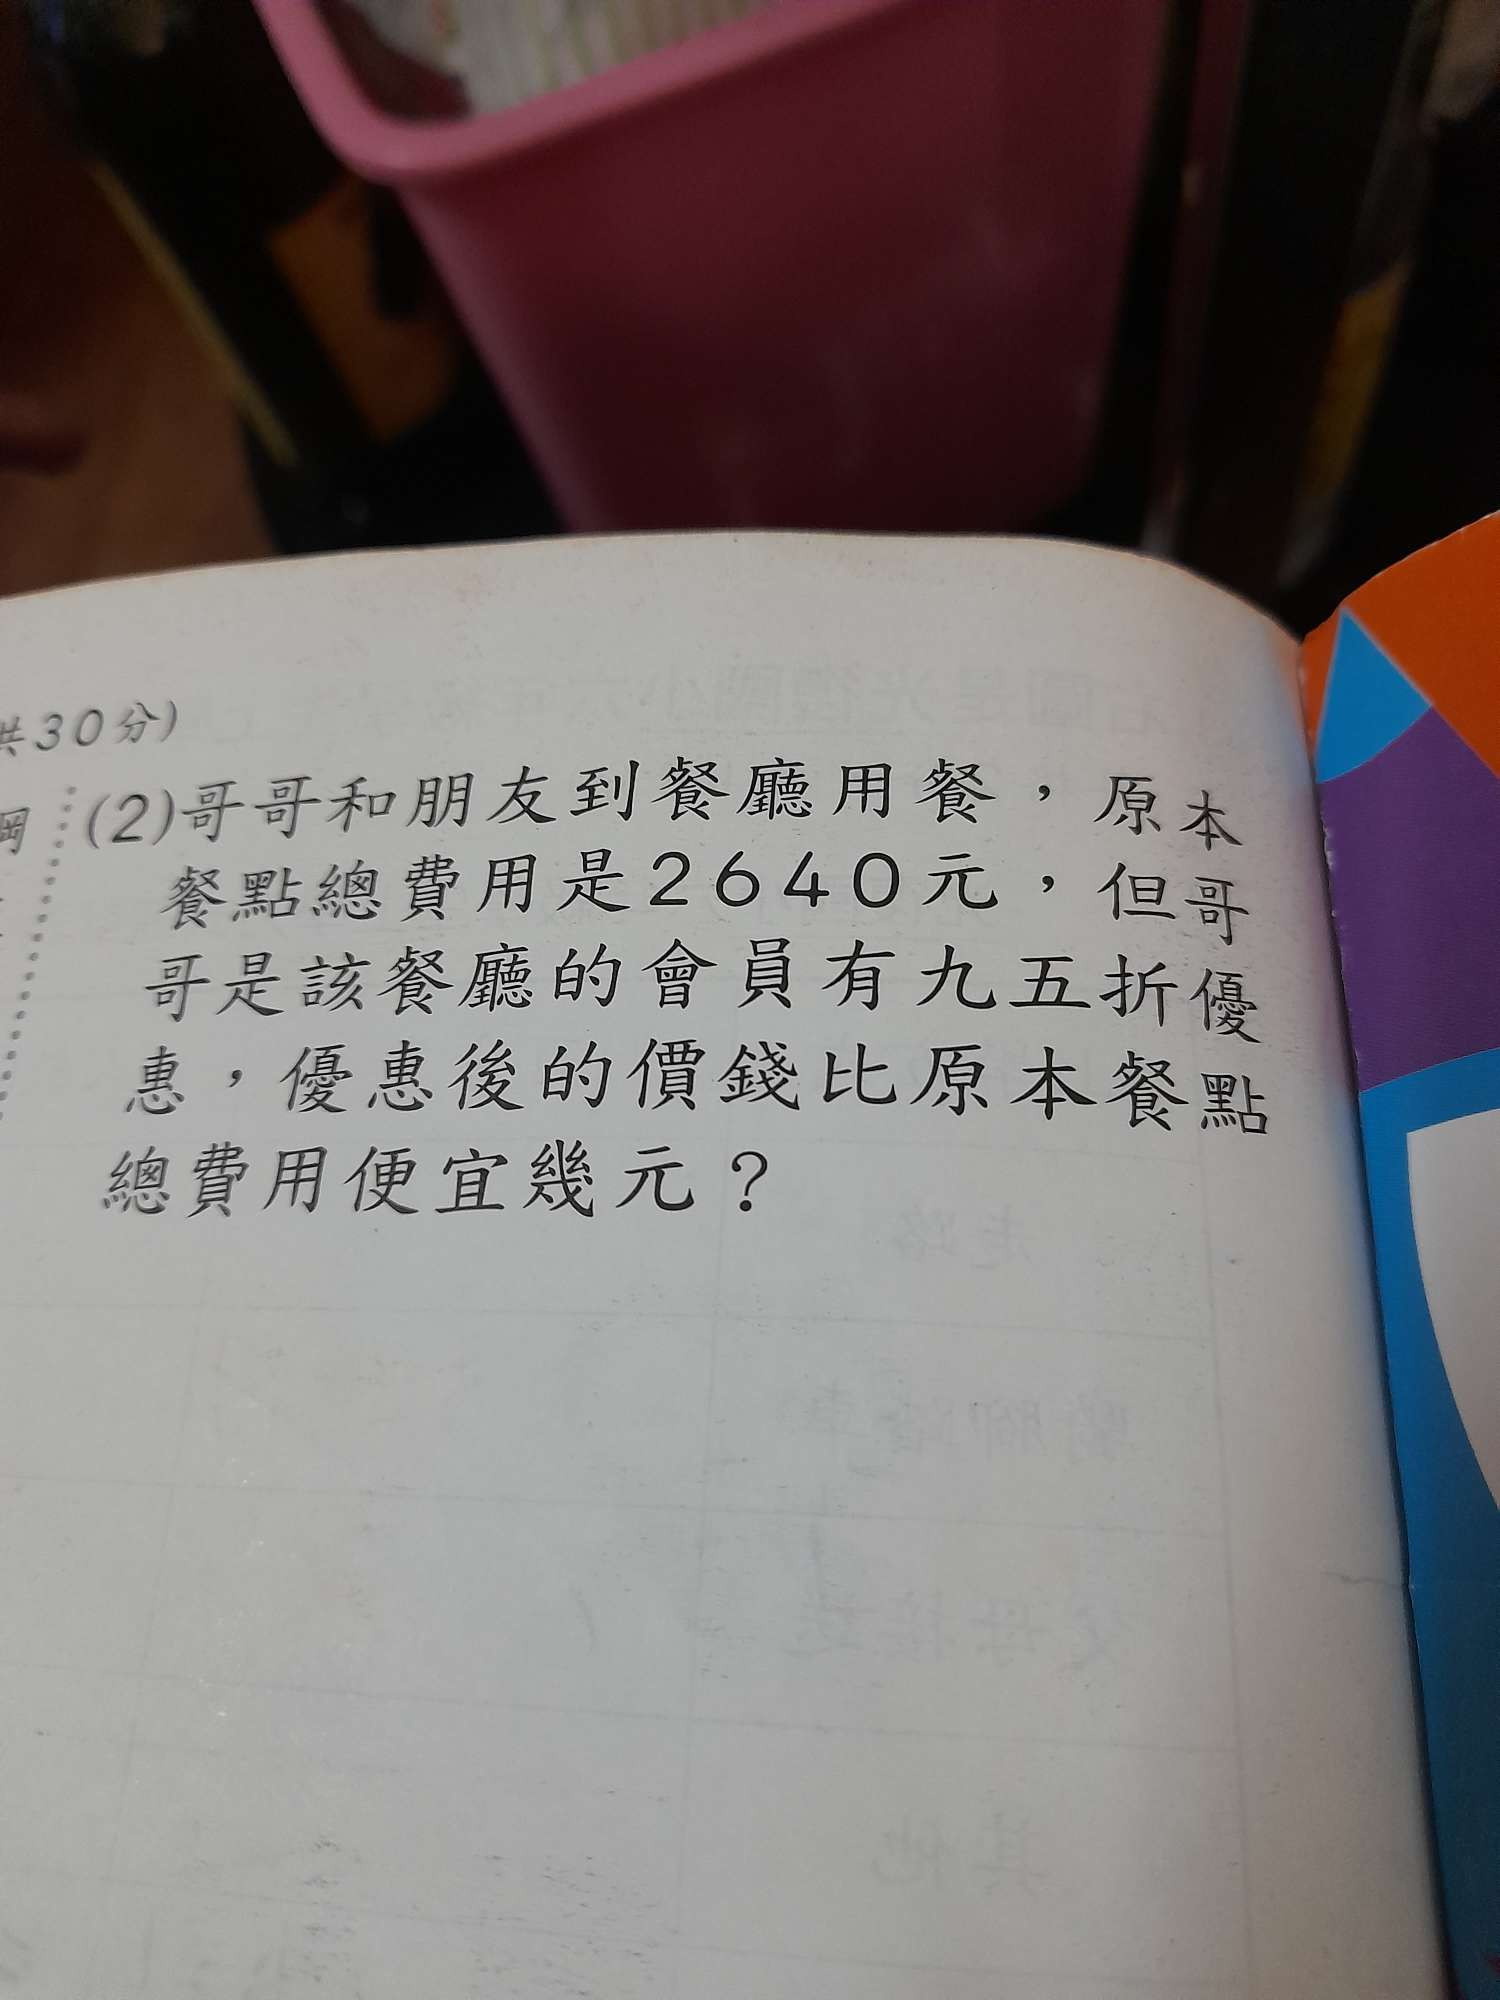 共30分)
(2)哥哥和朋友到餐廳用餐，原本
餐點總費用是2640元，但哥
哥是該餐廳的會員有九五折優
惠，優惠後的價錢比原本餐點
總費用便宜幾元？